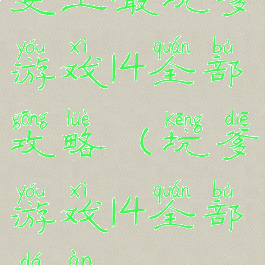 史上最坑爹
yóu xì quán bù
游戏14全部
gōng lüè kēng diē
攻略(坑爹
yóu xì quán bù
游戏14全部
dá àn